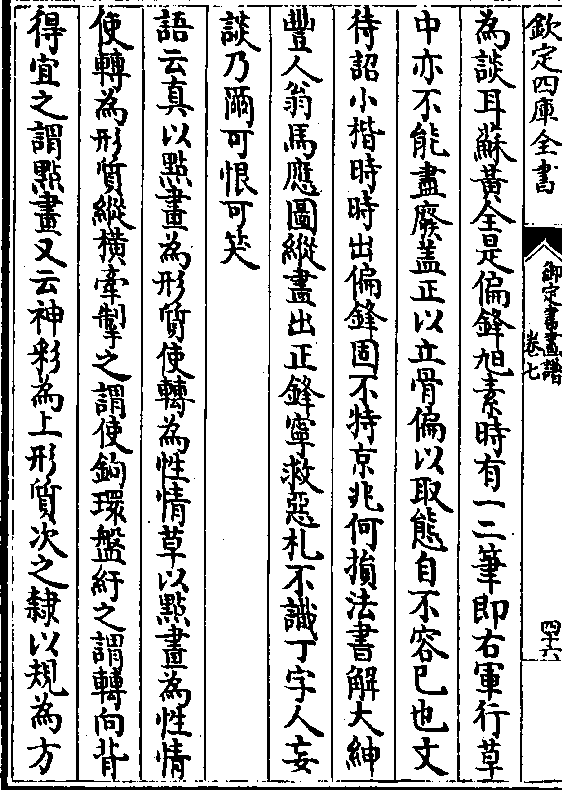 欽定四庫全書
御定書畫譜
卷七
四十六
為談耳蘇黃全是偏鋒旭素時有一二筆即右軍行草
中亦不能盡廢蓋正以立骨偏以取態自不容已也文
待詔小楷時時出偏鋒固不特京兆何損法書解大紳
豐人翁馬應圖縱盡出正鋒寧救惡札不識丁字人妄
談乃爾可恨可笑
語云真以點畫為形質使轉為性情草以點畫為性情
使轉為形質縱橫牽掣之謂使鉤環盤紆之謂轉向背
得宜之謂點畫又云神彩為上形質次之隸以規為方